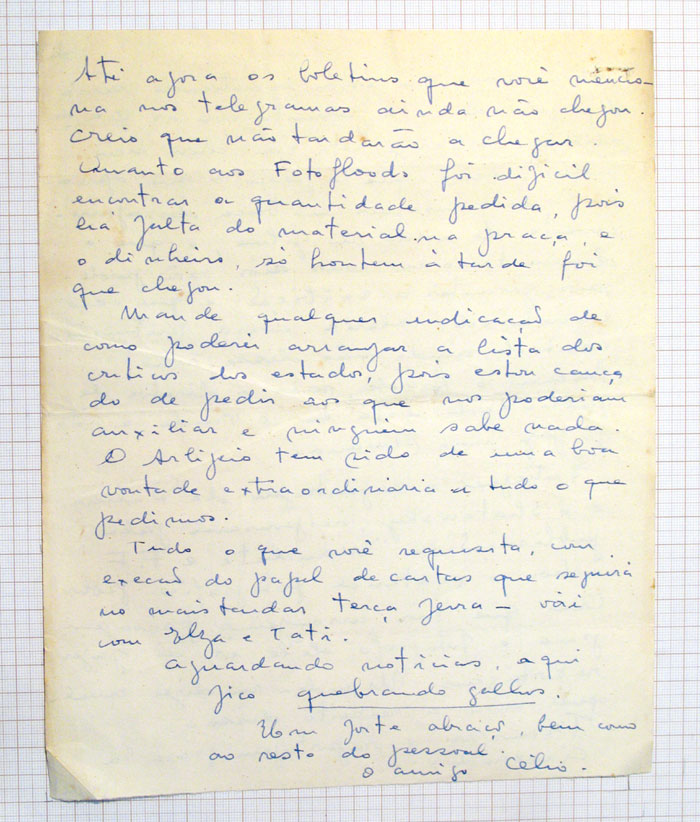 Até agora os boletins que você mencio-
na nos telegramas ainda não chegou.
Creio que não tardarão a chegar.
Quanto aos Fotofloods foi dificil
encontrar a quantidade pedida, pois
há falta do material na praça, e
o dinheiro, só hontem à tarde foi
que chegou.
Mande qualquer indicação de
como poderei arranjar a lista dos
criticos dos estados, pois estou cança
do de pedir aos que nos poderiam
auxiliar e ninguém sabe nada.
O Artigeio tem sido de uma boa
vontade extraordinária a tudo o que
pedimos.
Tudo o que você requisita, com
execão do papel de cartas que seguirá
no mais tardar terça ferra — vai
com Elza e Tati.
aguardando noticias, aqui
fico quebrando galhos.
Um forte abraço, bem como
ao resto do pessoal.
O amigo Célio.